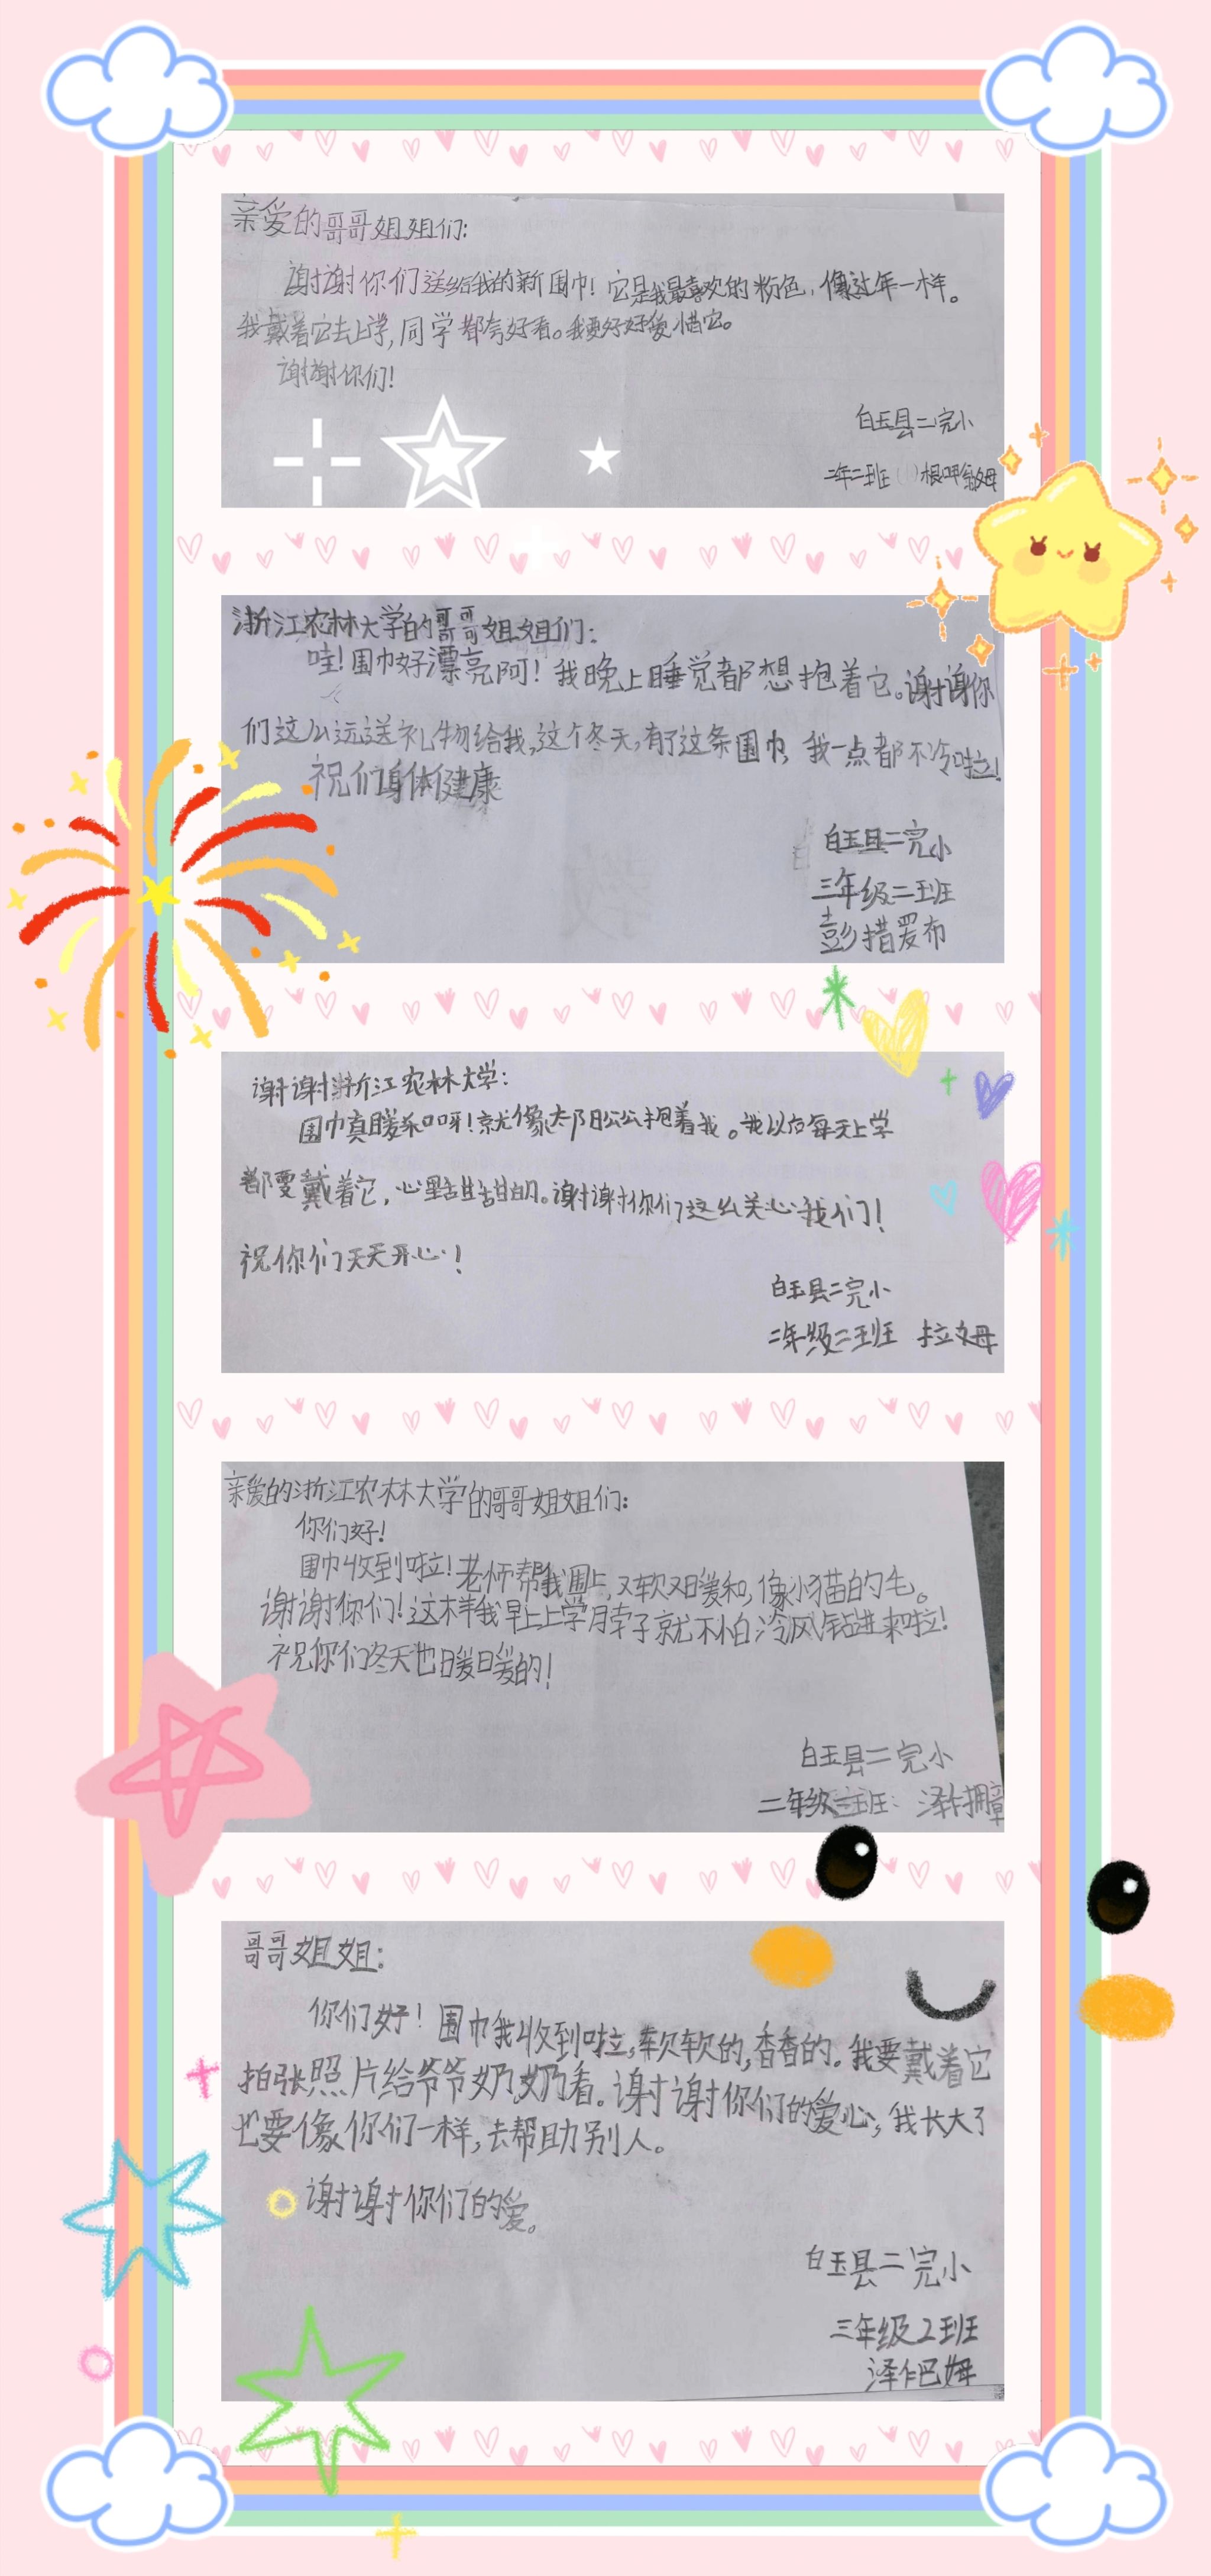 亲爱的哥哥姐姐们:
谢谢你们送给我的新围巾!它是我最喜欢的粉色,像过年一样。
我戴着它去上学,同学都夸好看。我要好好爱惜它。
谢谢你们!
白玉县二完小
二年二班 根呷翁姆
浙江农林大学的哥哥姐姐们:
哇!围巾好漂亮阿!我晚上睡觉都想抱着它。谢谢你
们这么远送礼物给我,这个冬天,有了这条围巾,我一点都不冷啦!
祝们身体健康
白玉县二完小
三年级二班
彭措罗布
谢谢浙江农林大学:
围巾真暖和呀!就像太阳公公抱着我。我以后每天上学
都要戴着它,心里甜甜的。谢谢你们这么关心我们!
祝你们天天开心!
白玉县二完小
二年级二班 拉姆
亲爱的浙江农林大学的哥哥姐姐们:
你们好!
围巾收到啦!老师帮我围上,又软又暖和,像小猫的毛。
谢谢你们!这样我早上上学脖子就不怕冷风钻进来啦!
祝你们冬天也暖暖的!
白玉县二完小
二年级二班: 泽仁拥章
哥哥姐姐:
你们好!围巾我收到啦,软软的,香香的。我要戴着它
拍张照片给爷爷奶奶看。谢谢你们的爱心,我长大了
也要像你们一样,去帮助别人。
谢谢你们的爱。
白玉县二完小
三年级2班
泽仁巴姆